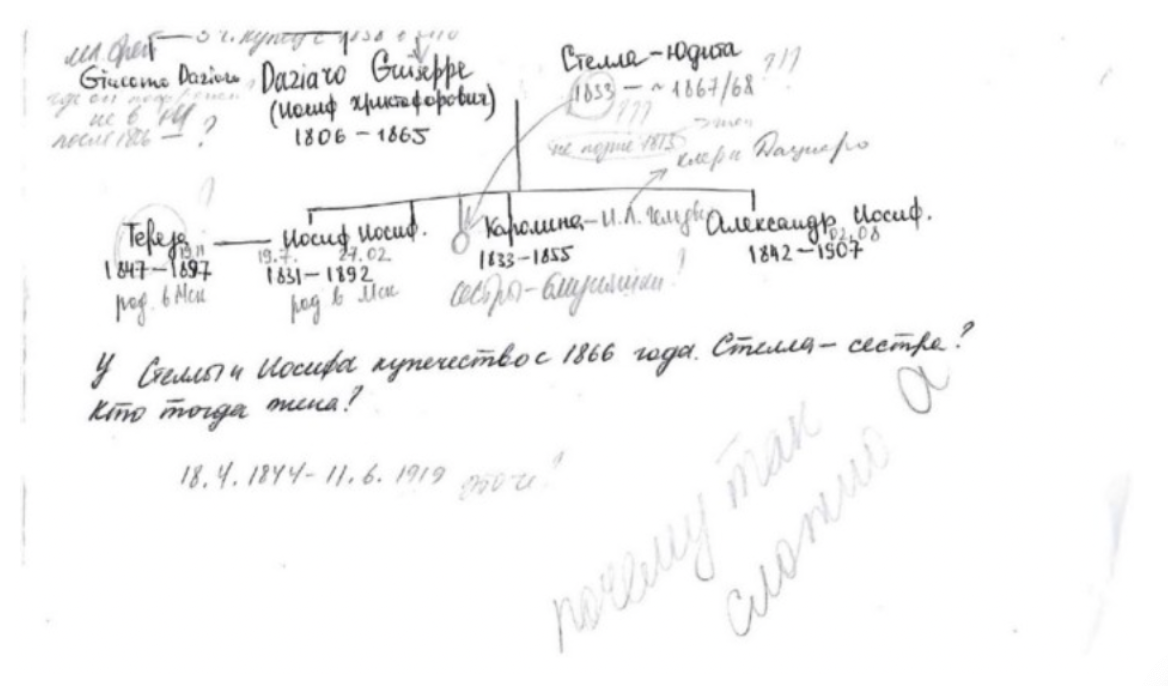 мл. брат — 3 г. купец с 1838
Giacomo Daziaro
Daziaro Giuseppe
(Иосиф Христофорович)
1806 – 1865
не в
после 18 — ?
Стелла-Юдита
1833 – ~ 1867/68 ???
???
не позже 1815
Тереза — Иосиф Иосиф.
19.11
1847–1897
род. в Мск
19.7. 27.02
1831–1892
род в Мск
Каролина – И.Л.
1833–1855
сестры-близняшки!
Александр Иосиф.
02.08
1842–1907
У Стеллы и Иосифа купечество с 1866 года. Стелла – сестра?
Кто тогда жена?
18.4.1844 – 11.6.1919
почему так
сложно а